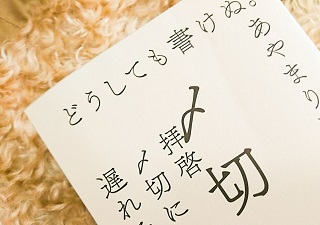 どうしても書けぬ。あやまり
〆切
拝啓
〆切に
遅れ